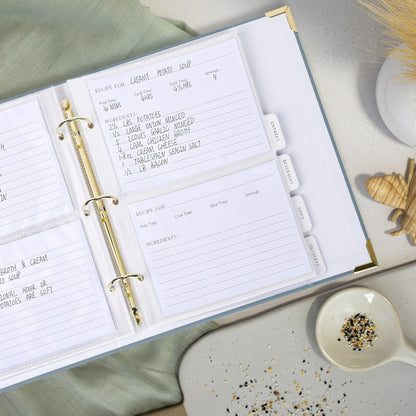 RECIPE FOR: CREAMY POTATO SOUP
Prep Time: Cook Time: Total Time: Servings:
30 MINS 4 HRS 4 ½ HRS 4
INGREDIENTS:
2 ½ LBS POTATOES
½ LARGE ONION MINCED
3 CLOVES GARLIC MINCED
4 CANS CHICKEN BROTH
1-8 oz CREAM CHEESE
1 TABLESPAIN SEASON SALT
½ LB BACON
ENTREES
BEVERAGES
SIDES
DESSERTS
RECIPE FOR:
Prep Time: Cook Time: Total Time: Servings:
INGREDIENTS:
BROTH & CREAM
SOUP
HOUR OR
POTATOES ARE SOFT